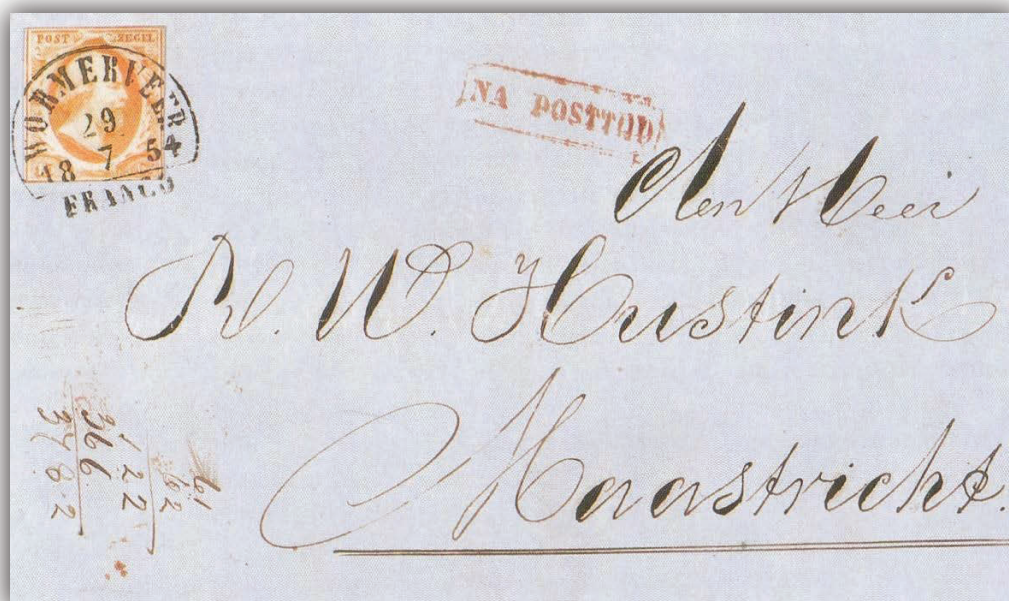 POST ZEGEL
WORMERVEER
29
18 7 54
FRANCO
NA POSTTYD
Den Heer
R. W. Hustinx
Maastricht.
61
62
122
366
3782